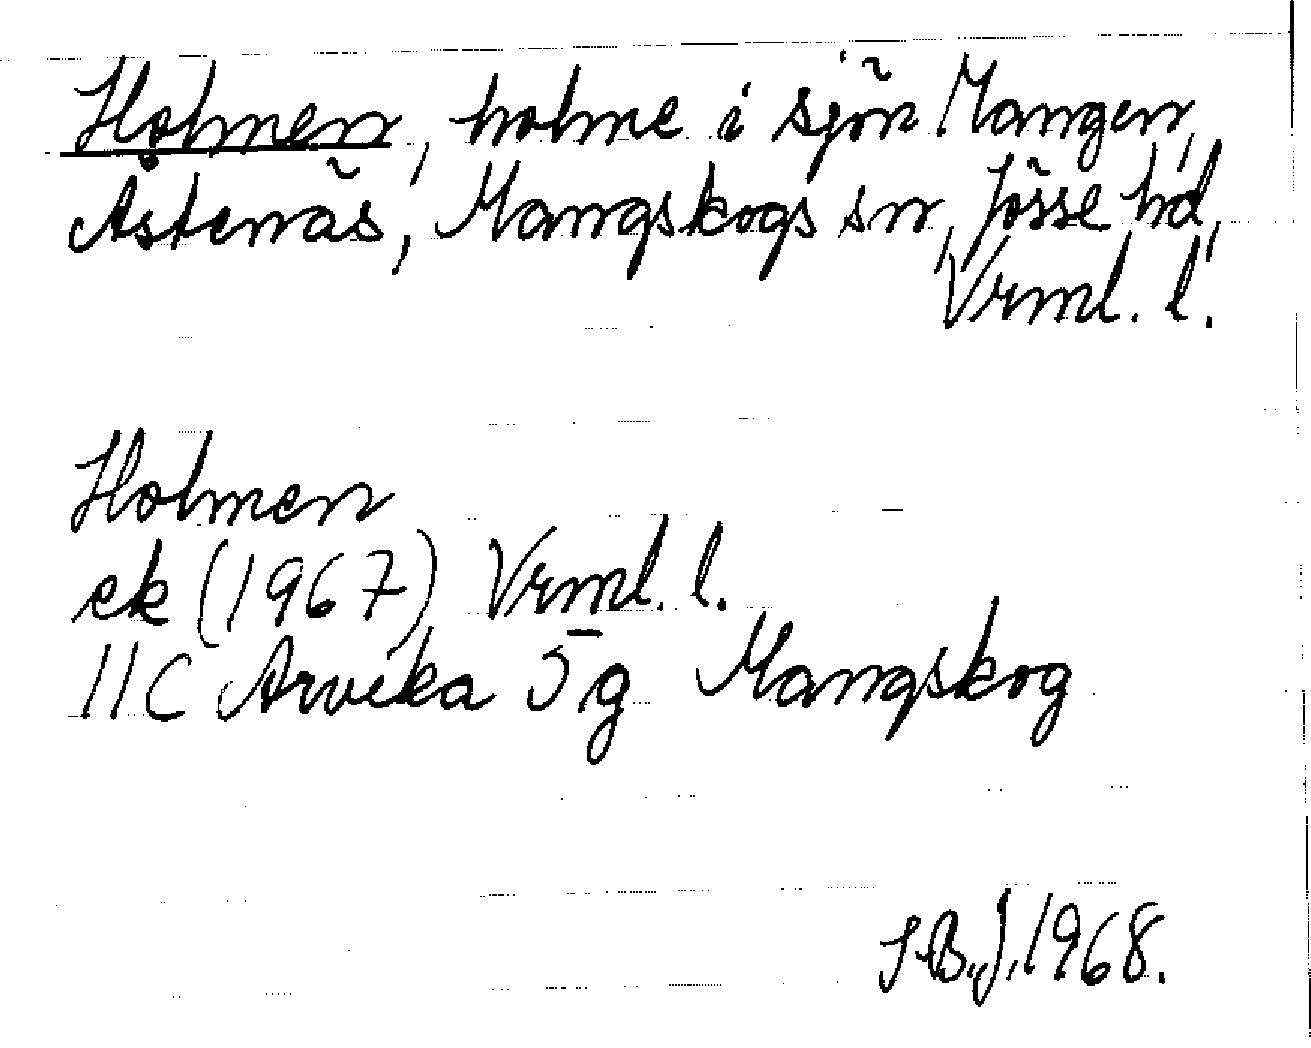 Holmen, holme i sjön Mangen,
Åstenäs, Mangskogs sn, Jösse hd,
Vrml. l.
Holmen
ek (1967) Vrml. l.
11C Arvika 5g Mangskog
S-B.J. 1968.